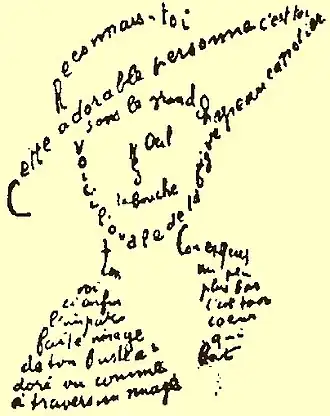 Reconnais-toi
Cette adorable personne c'est toi
sous le grand chapeau canotier
Oeil
Nez
la bouche
Voici l'ovale de ta figure
ton
Cou exquis
voi
ci enfin
l'impar
faite image
de ton buste a
doré vu comme
à travers un nuage
un peu
plus bas
c'est ton
coeur
qui
bat